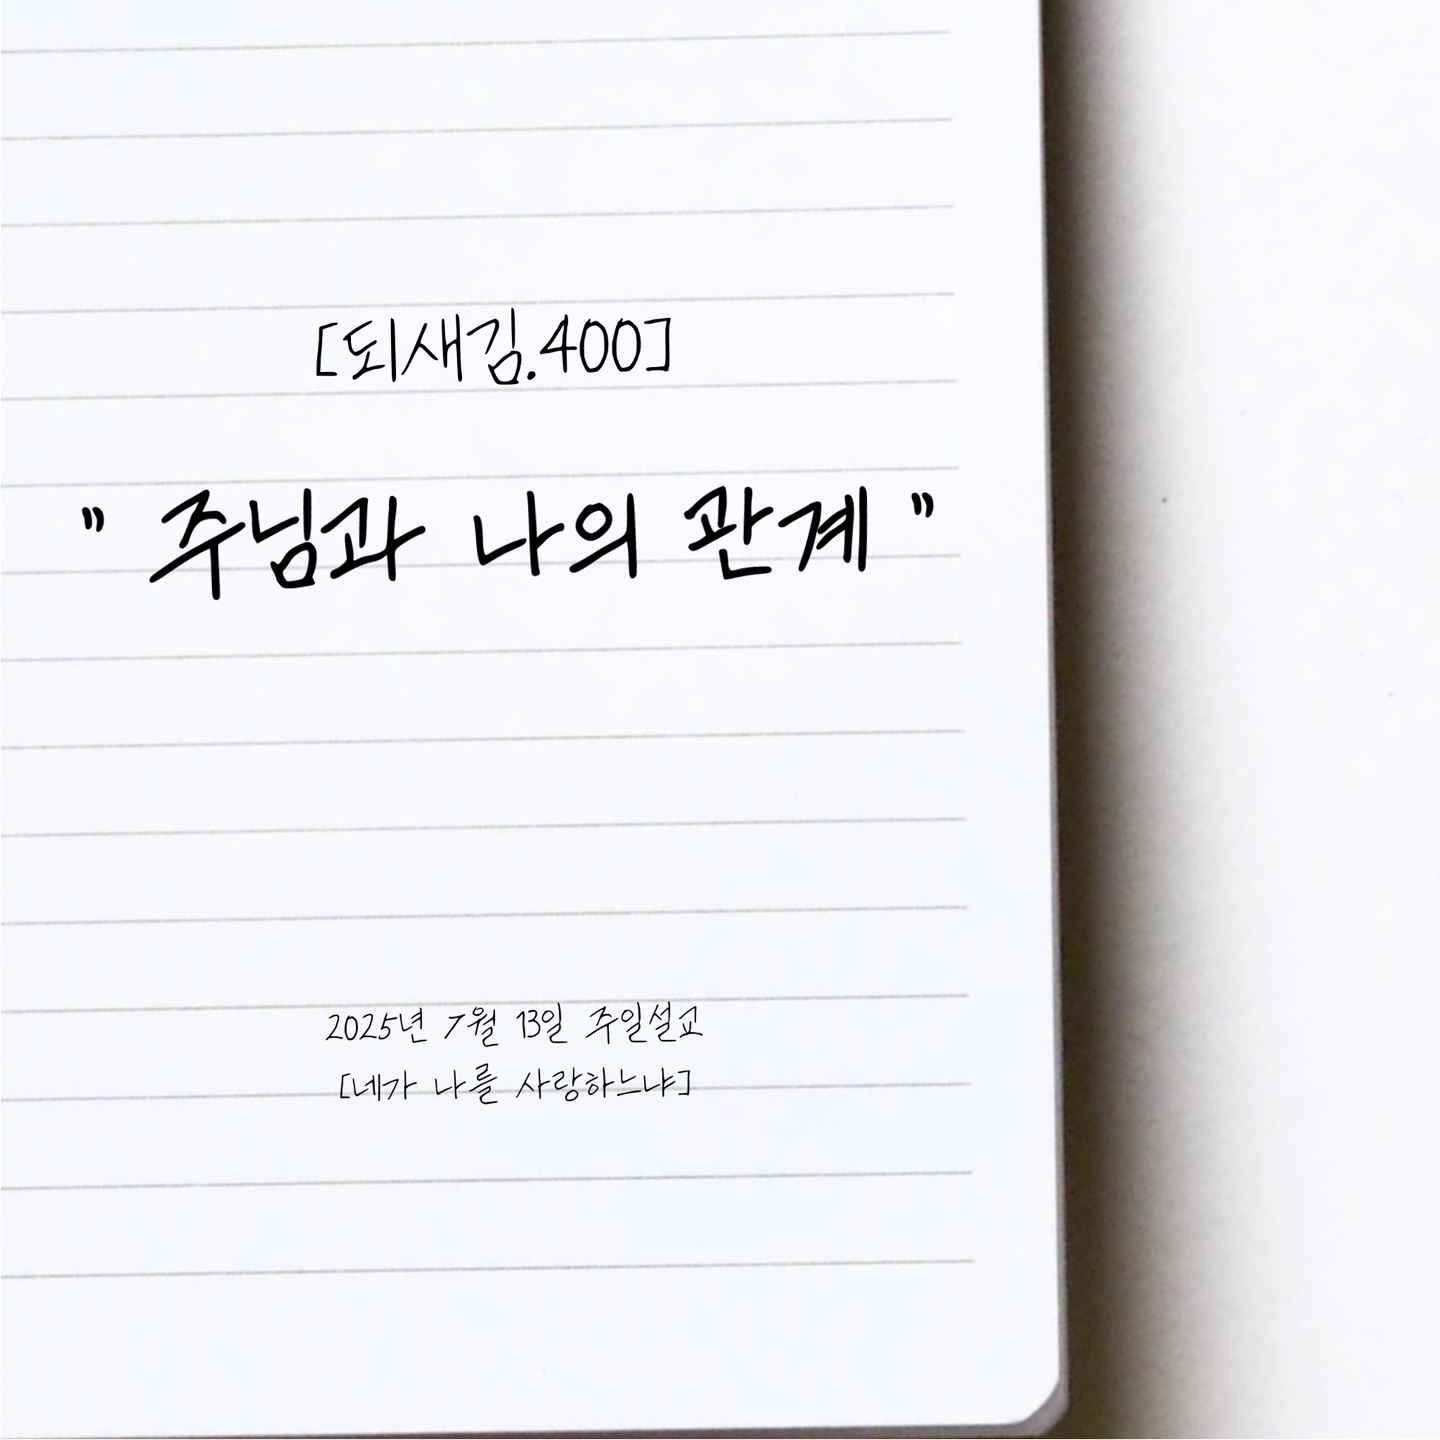 [되새김.400]
" 주님과 나의 관계 "
2025년 7월 13일 주일설교
[네가 나를 사랑하느냐]